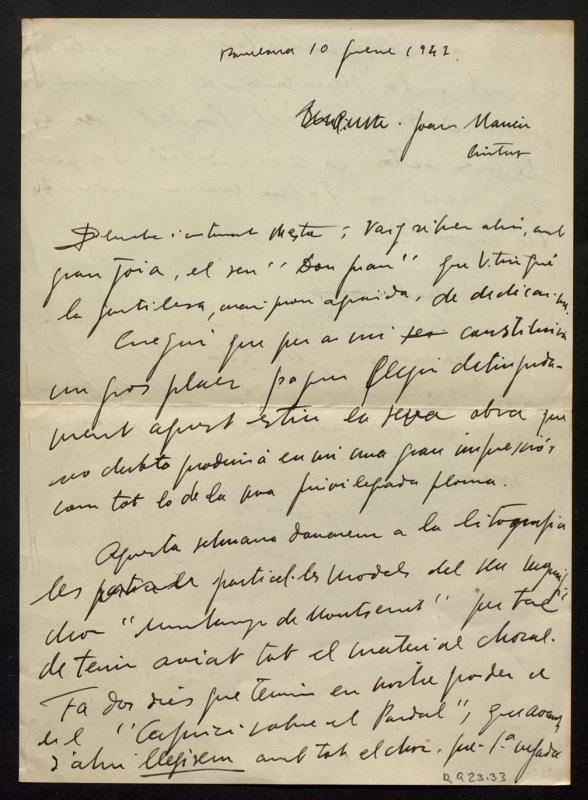 Barcelona 10 1942.
Joan Manén
Ciutat
mestre; Vaig rebre ahir, amb
gran joia, el seu "Don Juan" que V. tingué
la gentilesa, mai prou agraida, de dedicar-me.
Cregui que per a mi constituirà
un gros plaer poguer llegir detinguda-
ment aquest estiu la seva obra que
no dubto produirà en mi una gran impressió
com tot lo de la seva privilegiada ploma.
Aquesta setmana donarem a la litografia
les particel·les models del seu
chor "Muntanya de Montserrat" per tal
de tenir aviat tot el material choral.
Fa dos dies que tenim en nostre poder el
"Caprici sobre el Pardal", que avans
d'ahir llegirem amb tot el chor per 1ª vegada
R 923.33